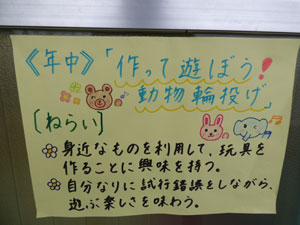 《年中》「作って遊ぼう！
動物輪投げ」
〔ねらい〕
身近なものを利用して、玩具を
作ることに興味を持つ。
自分なりに試行錯誤をしながら、
遊ぶ楽しさを味わう。